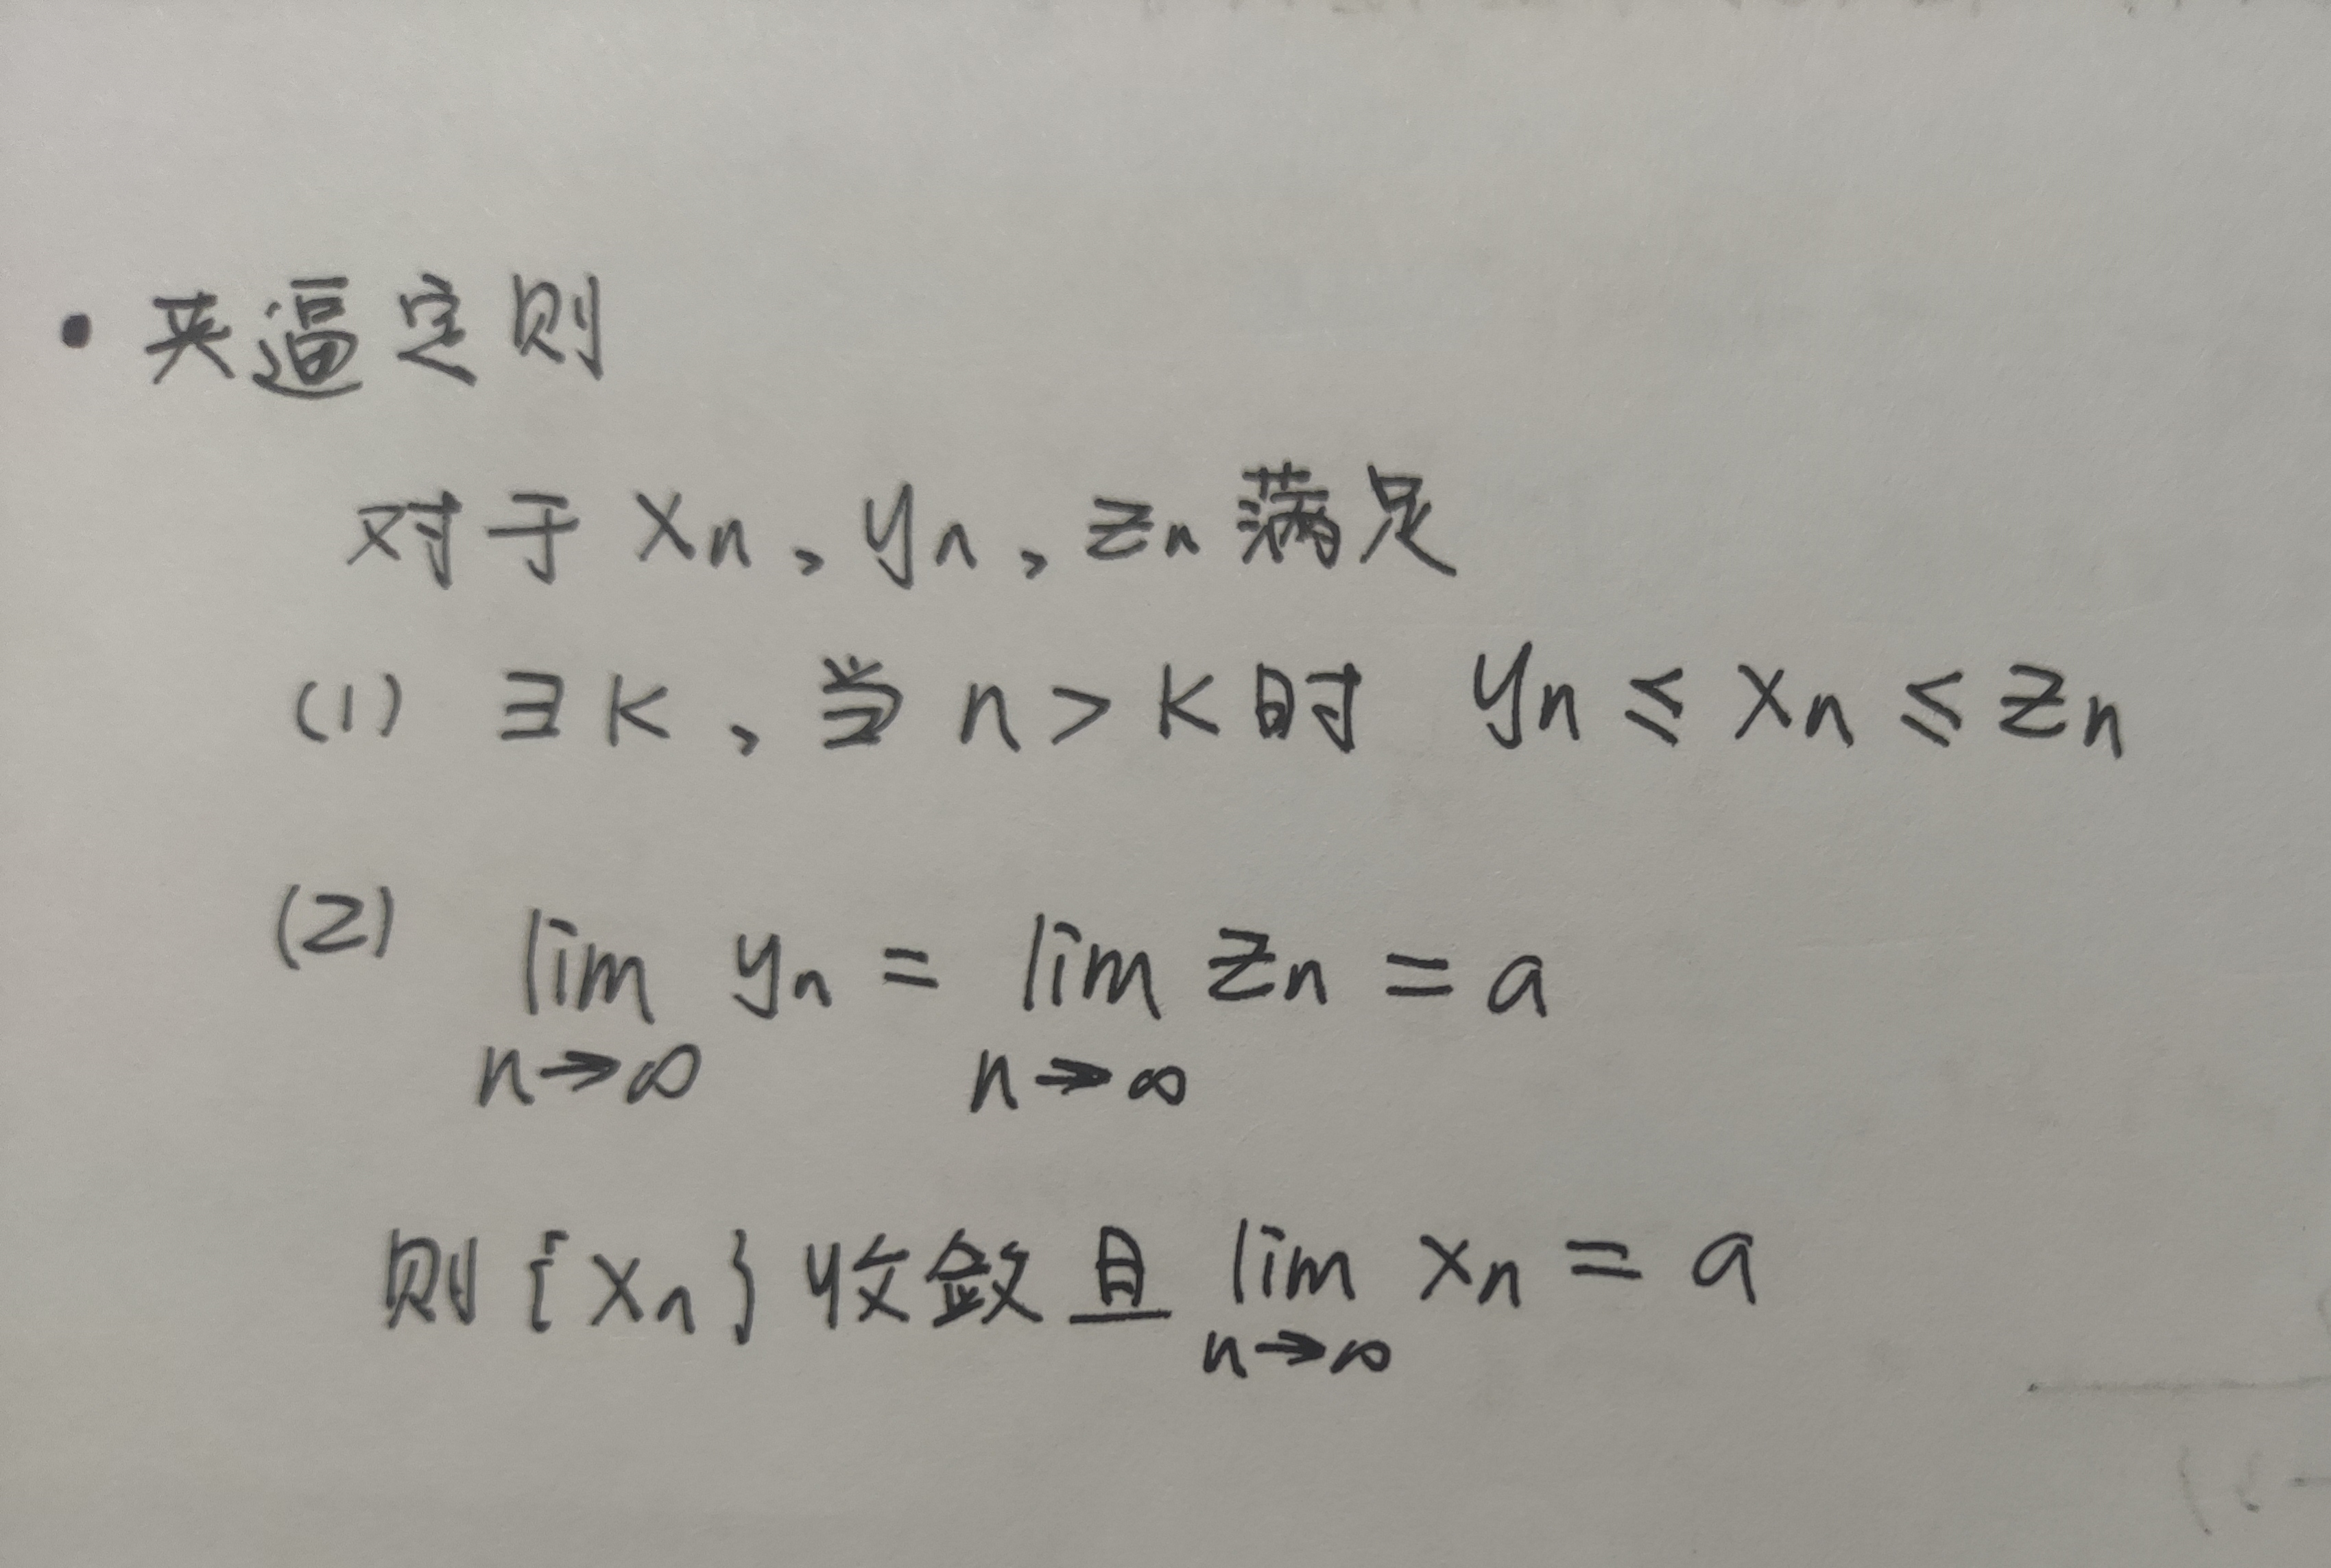 • 夹逼定则
对于 xn, yn, zn 满足
(1) ∃ k, 当 n > k 时 yn ≤ xn ≤ zn
(2) lim yn = lim zn = a
n→∞ n→∞
则 {xn} 收敛且 lim xn = a
n→∞